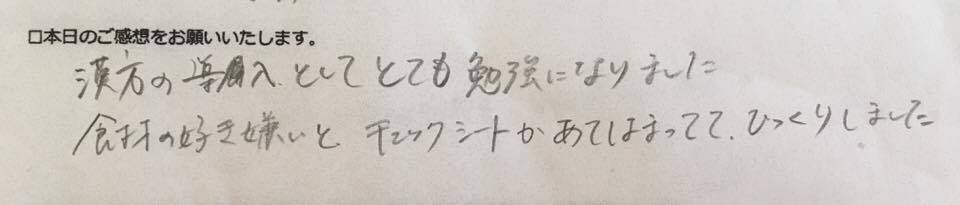 □本日のご感想をお願いいたします。
漢方の導入としてとても勉強になりました
食材の好き嫌いと チェックシートがあてはまってて、びっくりしました